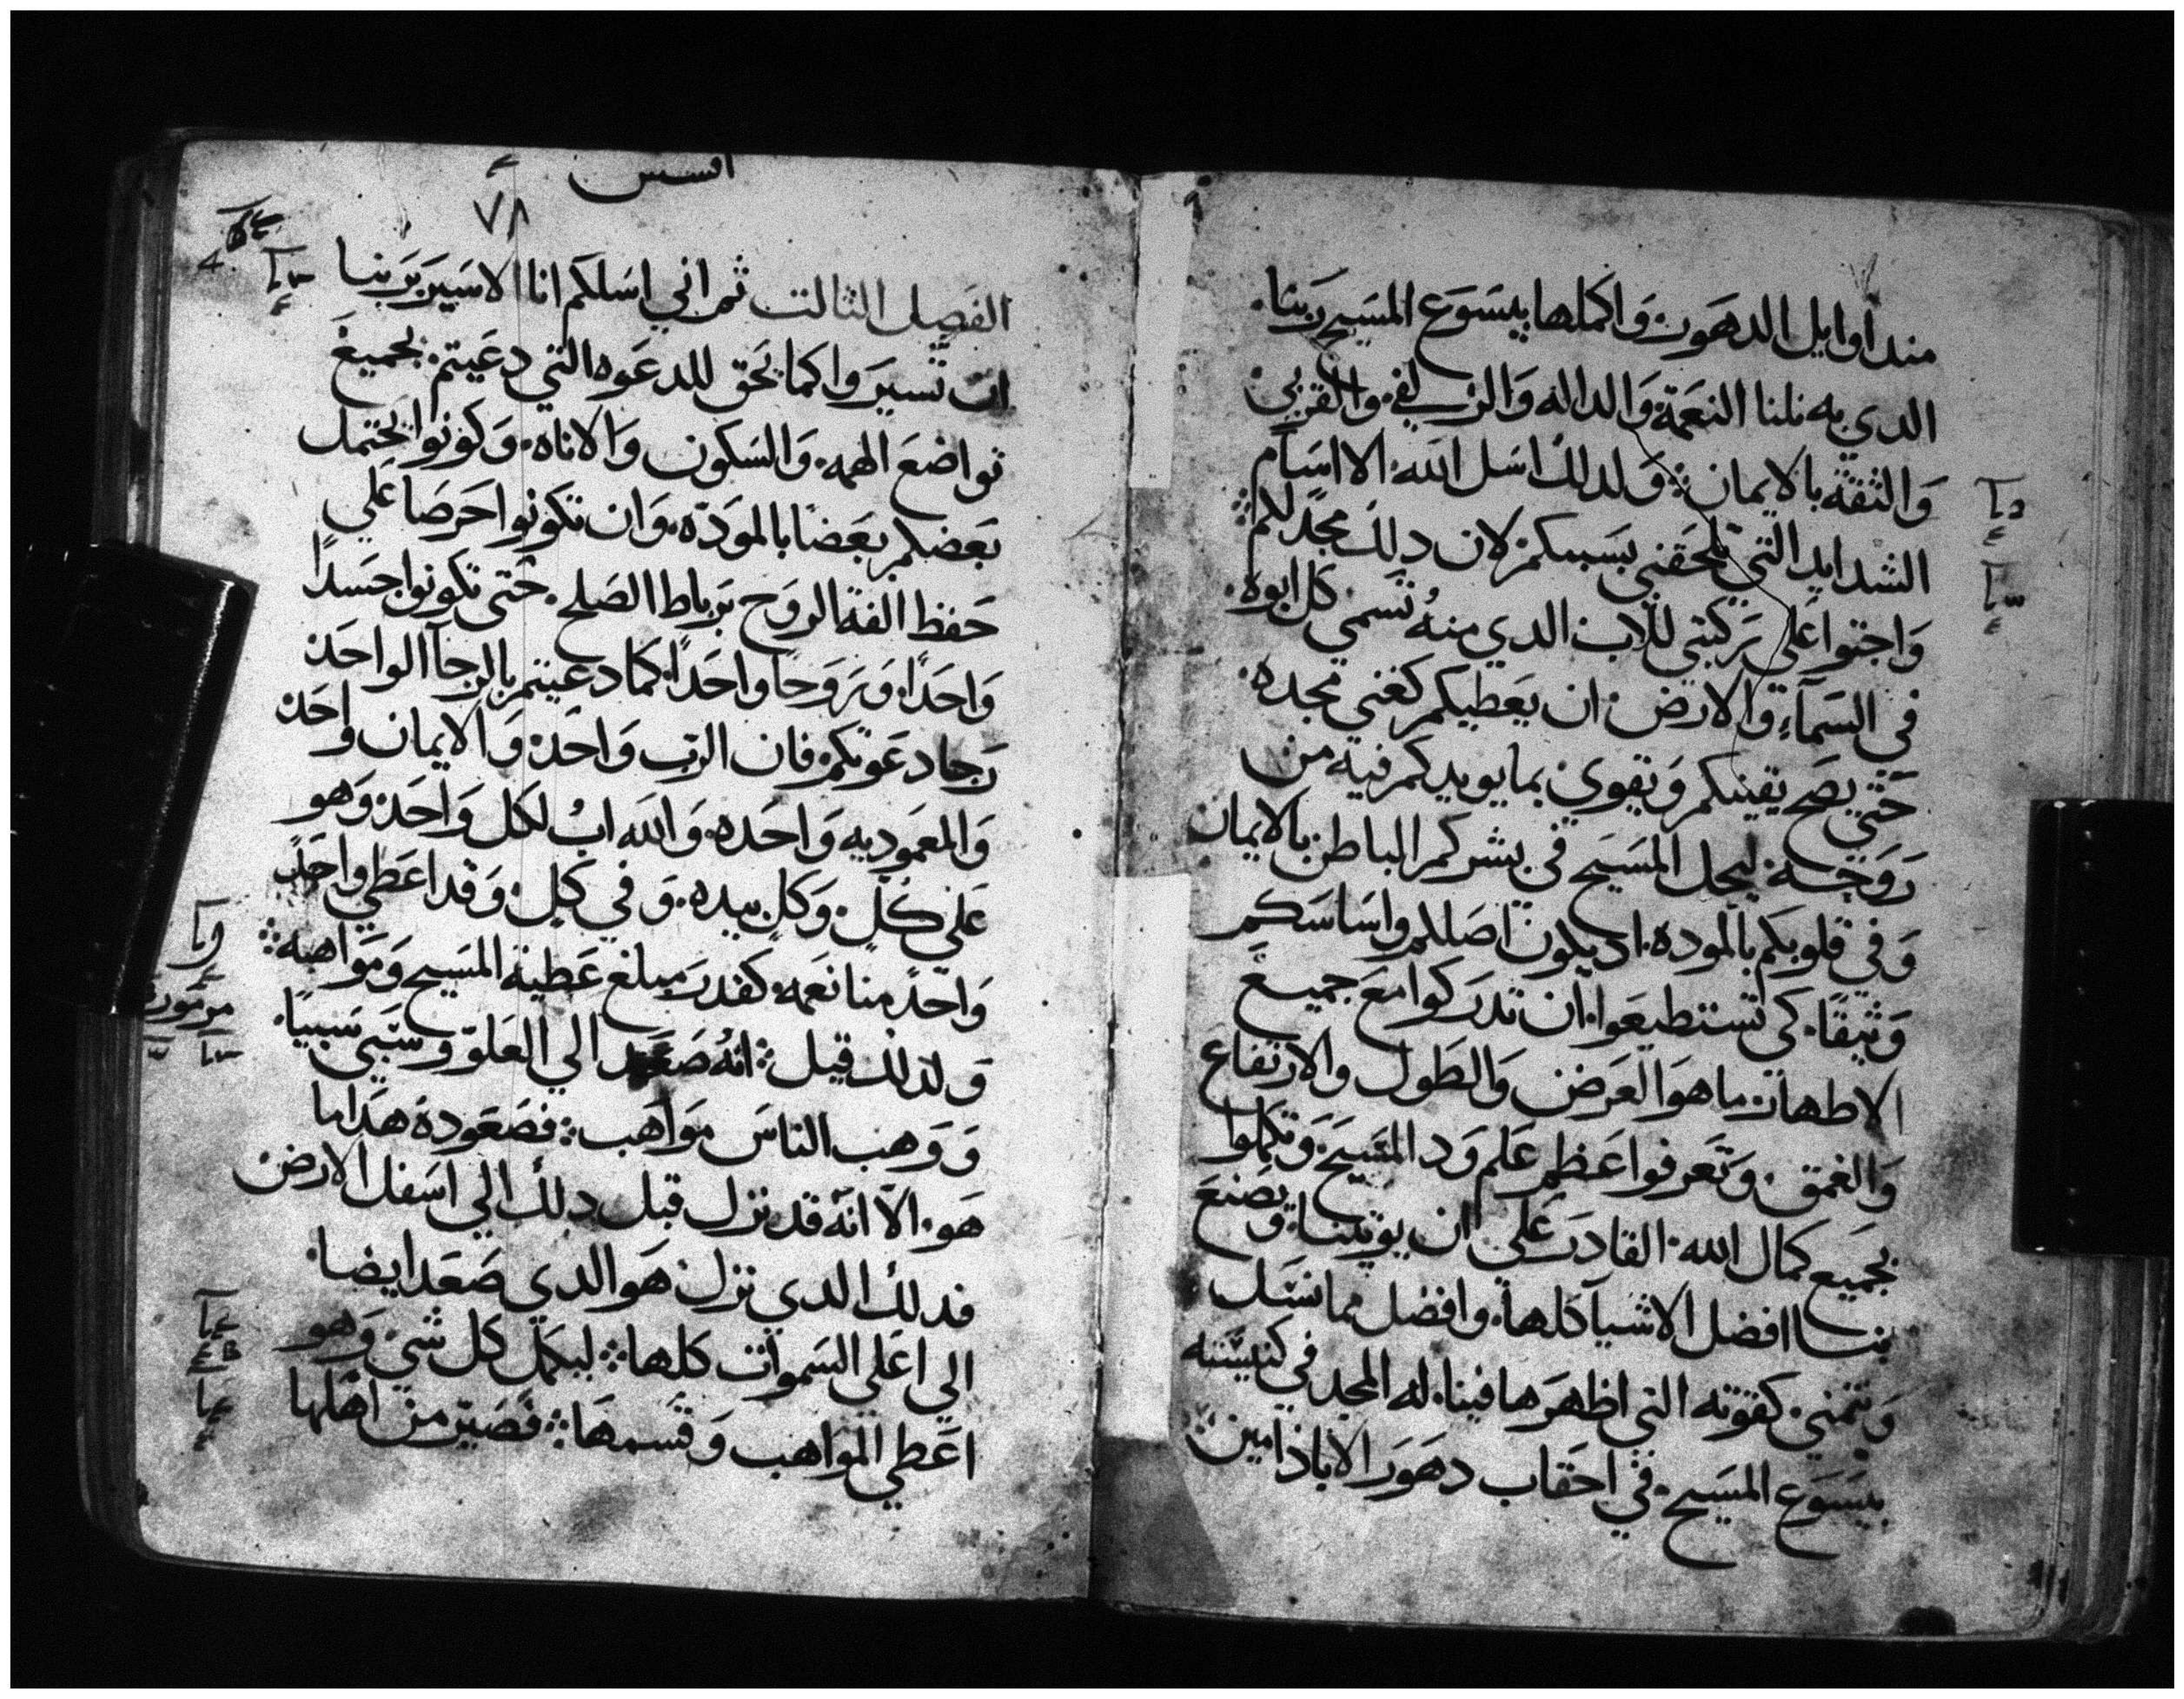 مند اوايل الدهور. واكملها بيسوع المسيح ربنا.
الدي به نلنا النعمة والداله والزلفي. والقربي
والثقه بالايمان. ولدلك اسل الله. الا اسام
الشدايد التي تلحقني بسببكم. لان دلك مجد لكم
واجتوا علي ركبتي للاب الدي منه تسمي كل ابوه.
في السماء والارض. ان يعطيكم كغني مجده.
حتي يصح يقينكم ويقوي. بما يويدكم فيه من
روحه. ليحل المسيح في بشركم الباطن بالايمان
وفي قلوبكم بالموده. اد يكون اصلكم واساسكم
وثيقا. كي تستطيعوا. ان تدركوا مع جميع
الاطهار. ما هو العرض والطول والارتفاع
والعمق. وتعرفوا عظم علم ود المسيح. وتكملوا
بجميع كمال الله. القادر علي ان يوتينا. ويصنع
بنا افضل الاشيا كلها. وافضل مما نسل
ونتمني. كقوته التي اظهرها فينا. له المجد في كنيسته
بيسوع المسيح. في احقاب دهور الاباد امين.
افسس
٧٨
الفصل الثالت ثم اني اسلكم انا الاسير بربنا
ان تسيروا كما يحق للدعوه التي دعيتم. بجميع
تواضع الهمه. والسكون والاناه. وكونوا يحتمل
بعضكم بعضا بالموده. وان تكونوا حرصا علي
حفظ الفة الروح برباط الصلح. حتي تكونوا جسدا
واحدا. وروحا واحدا. كما دعيتم بالرجا الواحد
رجا دعوتكم. فان الرب واحد. والايمان واحد
والمعموديه واحده. والله اب لكل واحد. وهو
علي كل. وكل بيده. وفي كل. وقد اعطي واحد
واحد منا نعمه. كقدر مبلغ عطية المسيح ومواهبه
ولدلك قيل. انه صعد الي العلو وسبي سبيا.
ووهب الناس مواهب. فصعوده هدا ما
هو. الا انه قد نزل قبل دلك الي اسفل الارض
فدلك الدي نزل. هو الدي صعد ايضا.
الي اعلي السموات كلها. ليكمل كل شي. وهو
اعطي المواهب وقسمها. فصير من اهلها